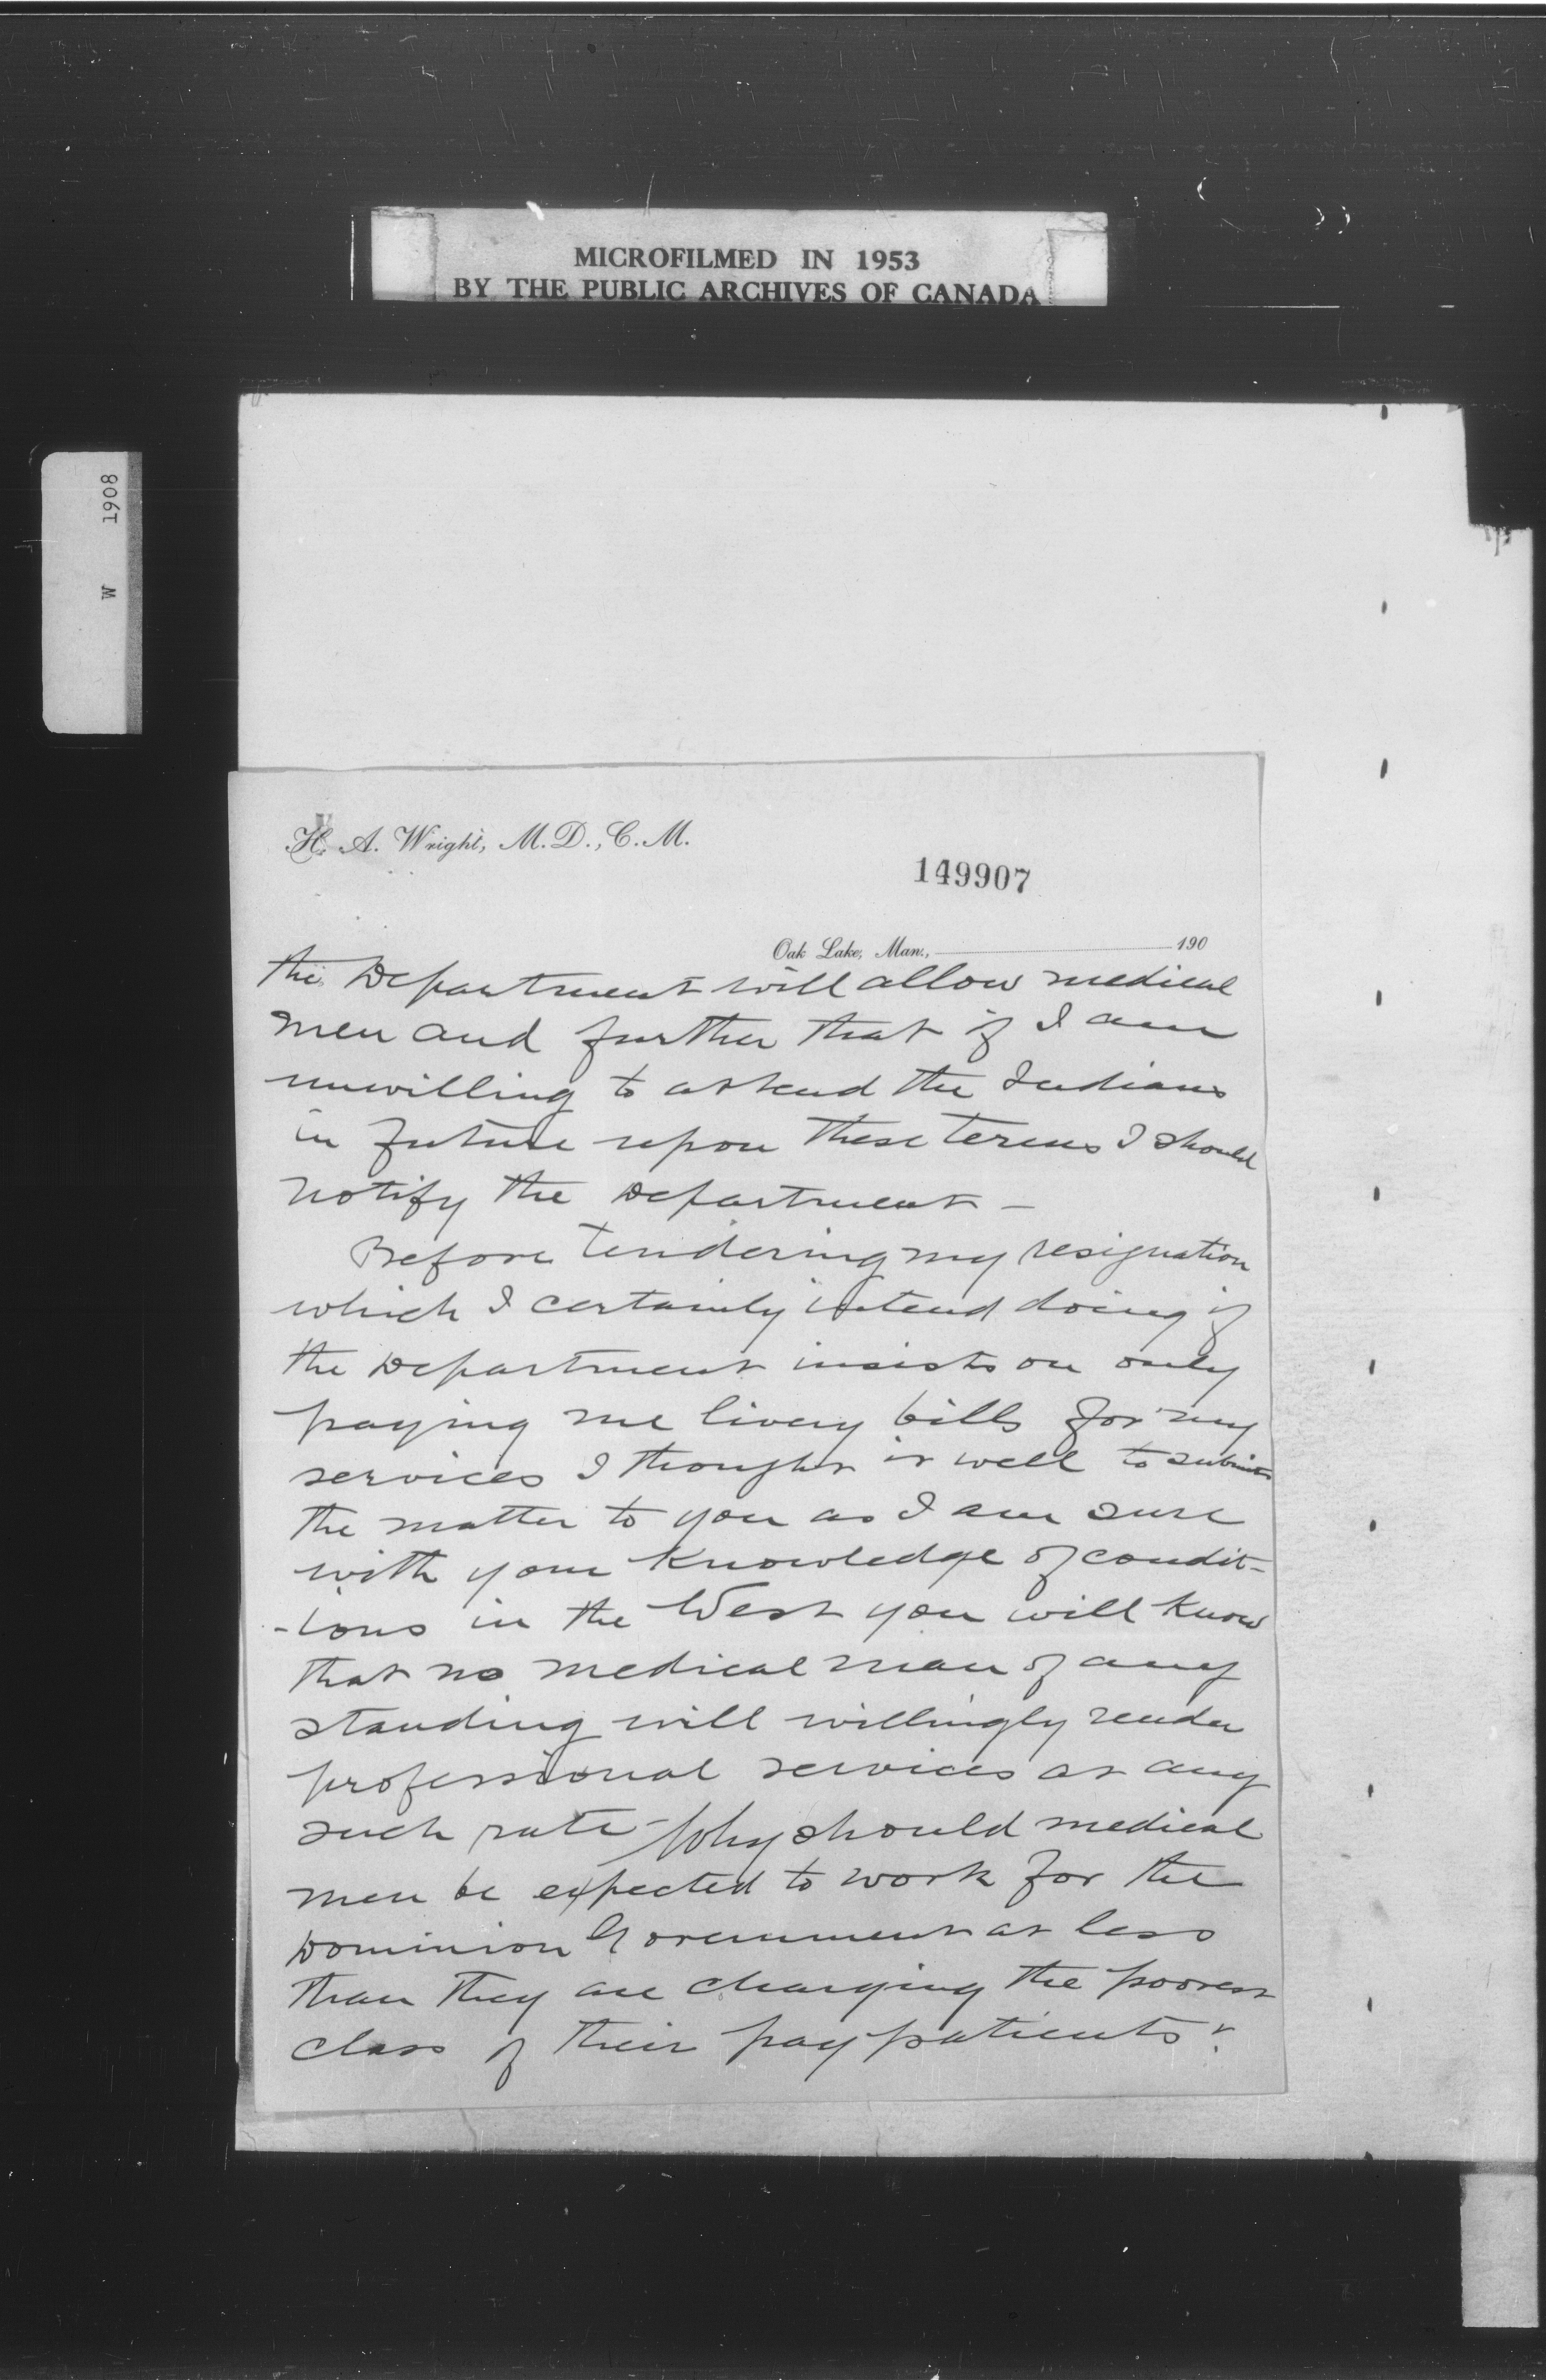 MICROFILMED IN 1953
BY THE PUBLIC ARCHIVES OF CANADA
W 1908
H. A. Wright, M.D., C.M.
149907
Oak Lake, Man., 190
the Department will allow medical
men and further that if I am
unwilling to attend the Indians
in future upon these terms I should
notify the Department —
Before tendering my resignation
which I certainly intend doing if
the Department insists on only
paying me livery bills for my
services I thought it well to submit
the matter to you as I am sure
with your knowledge of condit-
-ions in the West you will know
that no medical man of any
standing will willingly render
professional services at any
such rate - Why should medical
men be expected to work for the
Dominion Government at less
than they are charging the poorest
class of their pay patients?